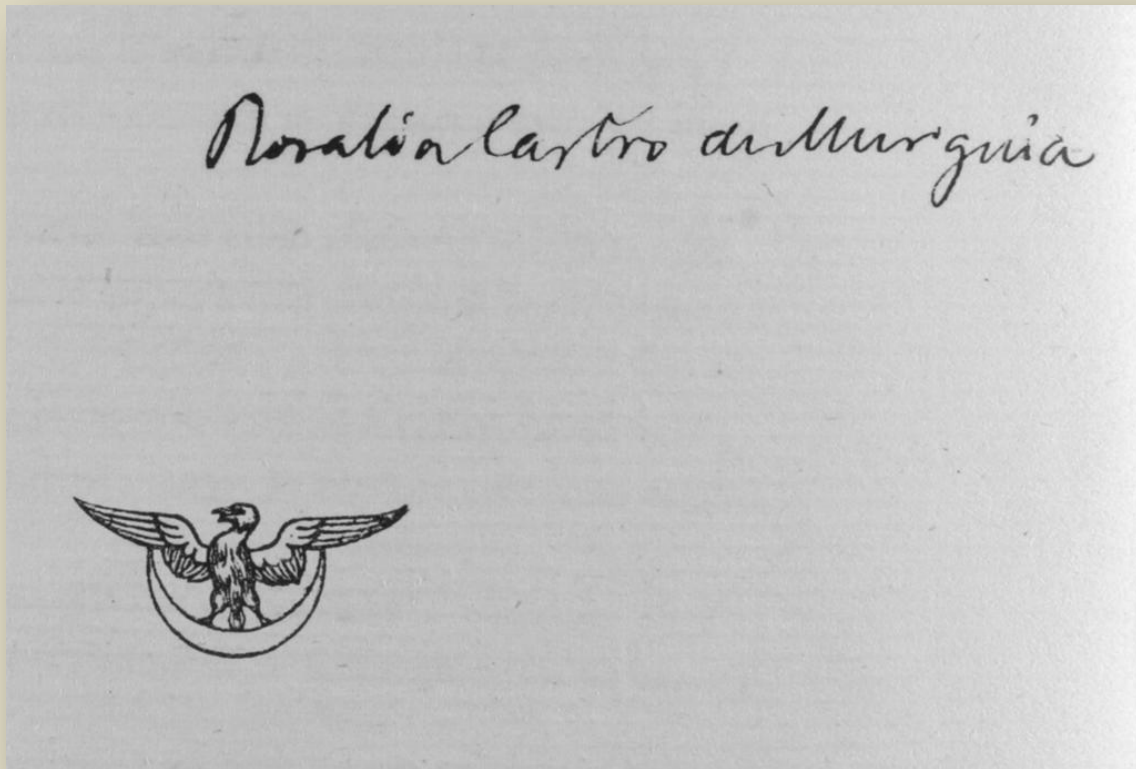 Rosalía Castro de Murguia